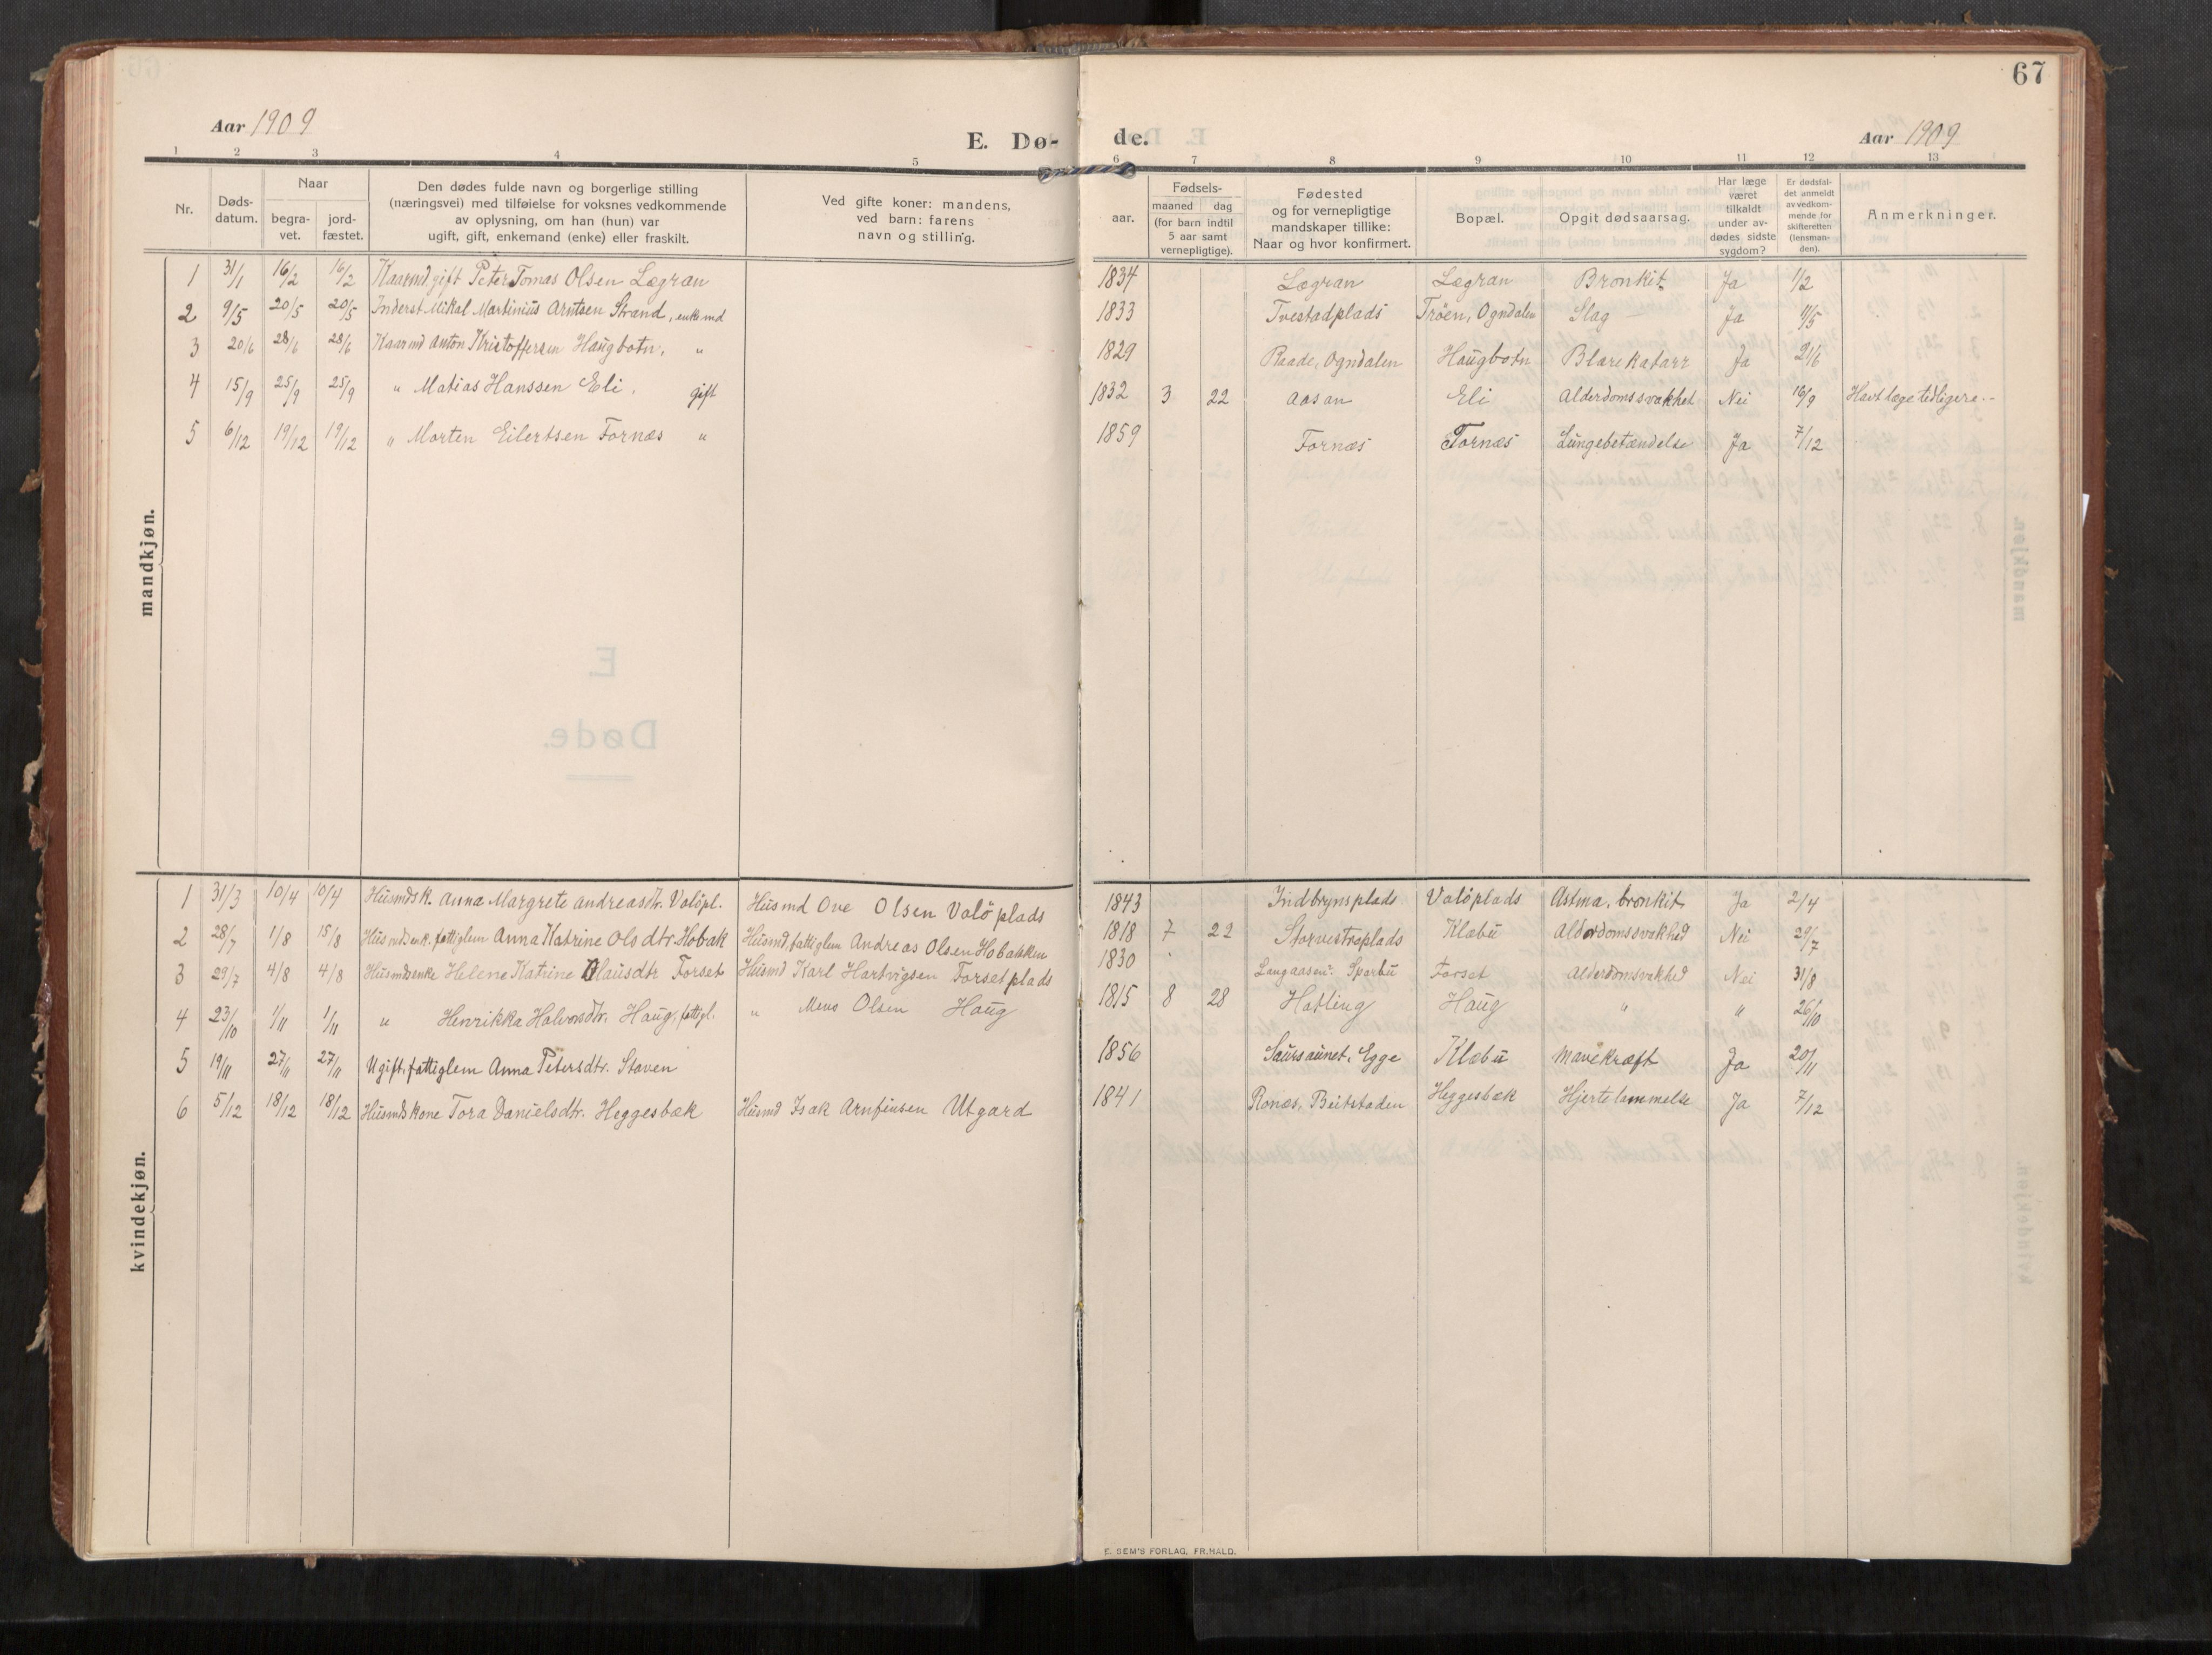 67
Aar 1909
E. Dø-
de.
Aar 1909
1 2 3 4 5 6 7 8 9 10 11 12 13
Nr.
Døds-
datum.
Naar
begra-
vet.
jord-
fæstet.
Den dødes fulde navn og borgerlige stilling
(næringsvei) med tilføielse for voksnes vedkommende
av oplysning, om han (hun) var
ugift, gift, enkemand (enke) eller fraskilt.
Ved gifte koner: mandens,
ved barn: farens
navn og stilling.
aar.
Fødsels-
maaned dag
(for barn indtil
5 aar samt
vernepligtige).
Fødested
og for vernepligtige
mandskaper tillike:
Naar og hvor konfirmert.
Bopæl.
Opgit dødsaarsag.
Har læge
været
tilkaldt
under av-
dødes sidste
sygdom?
Er dødsfal-
det anmeldt
av vedkom-
mende for
skifteretten
(lensman-
den).
Anmerkninger.
mandkjøn.
1 31/1 16/2 16/2 Kaarmd. gift Peter Tomas Olsen Lægran 1834 Lægran Lægran Bronkit Ja 1/2
2 9/5 20/5 20/5 Inderst Mikal Martinius Arntsen Strand, enkemd 1833 Tvestadplads Trøen, Ogndalen Slag Ja 11/5
3 20/6 28/6 28/6 Kaarmd Anton Kristoffersen Haugbotn, " 1829 Raade, Ogndalen Haugbotn Blærekatarr Ja 21/6
4 15/9 25/9 25/9 " Matias Hanssen Eli, gift 1832 3 22 Aasan Eli Alderdomssvakhet Nei 16/9 Havt læge tidligere.-
5 6/12 19/12 19/12 " Morten Eilertsen Fornæs " 1859 Fornæs Fornæs Lungebetændelse Ja 7/12
E.
Døde.
kvindekjøn.
1 31/3 10/4 10/4 Husmdsk. Anna Margrete Andreasdtr. Valöpl. Husmd Ove Olsen Valöplads 1843 Indbrynsplads Valöplads Astma, bronkit Ja 2/4
2 28/7 1/8 15/8 Husmdsenk. fattiglem Anna Katrine Olsdtr. Hobak Husmd, fattiglem Andreas Olsen Hobakken 1818 7 22 Storvestraplads Klæbu Alderdomssvakhed Nei 29/7
3 29/7 4/8 4/8 Husmdsenke Helene Katrine Olausdtr Forset Husmd Karl Hartvigsen Forsetplads 1830 Langaasen, Sparbu Forset Alderdomsvakhed Nei 31/8
4 23/10 1/11 1/11 " Henrikka Halvorsdtr. Haug, fattigl. " Mens Olsen Haug 1815 8 28 Hatling Haug " " 26/10
5 19/11 27/11 27/11 Ugift, fattiglem Anna Petersdtr. Staven 1856 Saursaunet, Egge Klæbu Mavekræft Ja 20/11
6 5/12 18/12 18/12 Husmdskone Tora Danielsdtr. Heggesbæk Husmd Isak Arnfinsen Utgard 1841 Ronæs, Beitstaden Heggesbæk Hjertelammelse Ja 7/12
E. SEM'S FORLAG, FR.HALD.